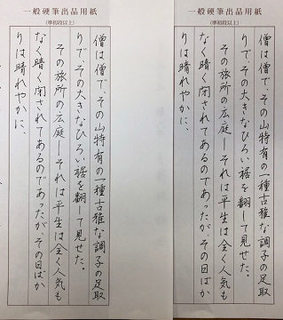 一般硬筆出品用紙
(準初段以上)
僧は僧で、その山特有の一種古雅な調子の足取
りで、その大きなひろい裾を翻して見せた。
その旅所の広庭―それは平生は全く人気も
なく暗く閉されてあるのであったが、その日ばか
りは晴れやかに、
一般硬筆出品用紙
(準初段以上)
僧は僧で、その山特有の一種古雅な調子の足取
りで、その大きなひろい裾を翻して見せた。
その旅所の広庭―それは平生は全く人気も
なく暗く閉されてあるのであったが、その日ばか
りは晴れやかに、